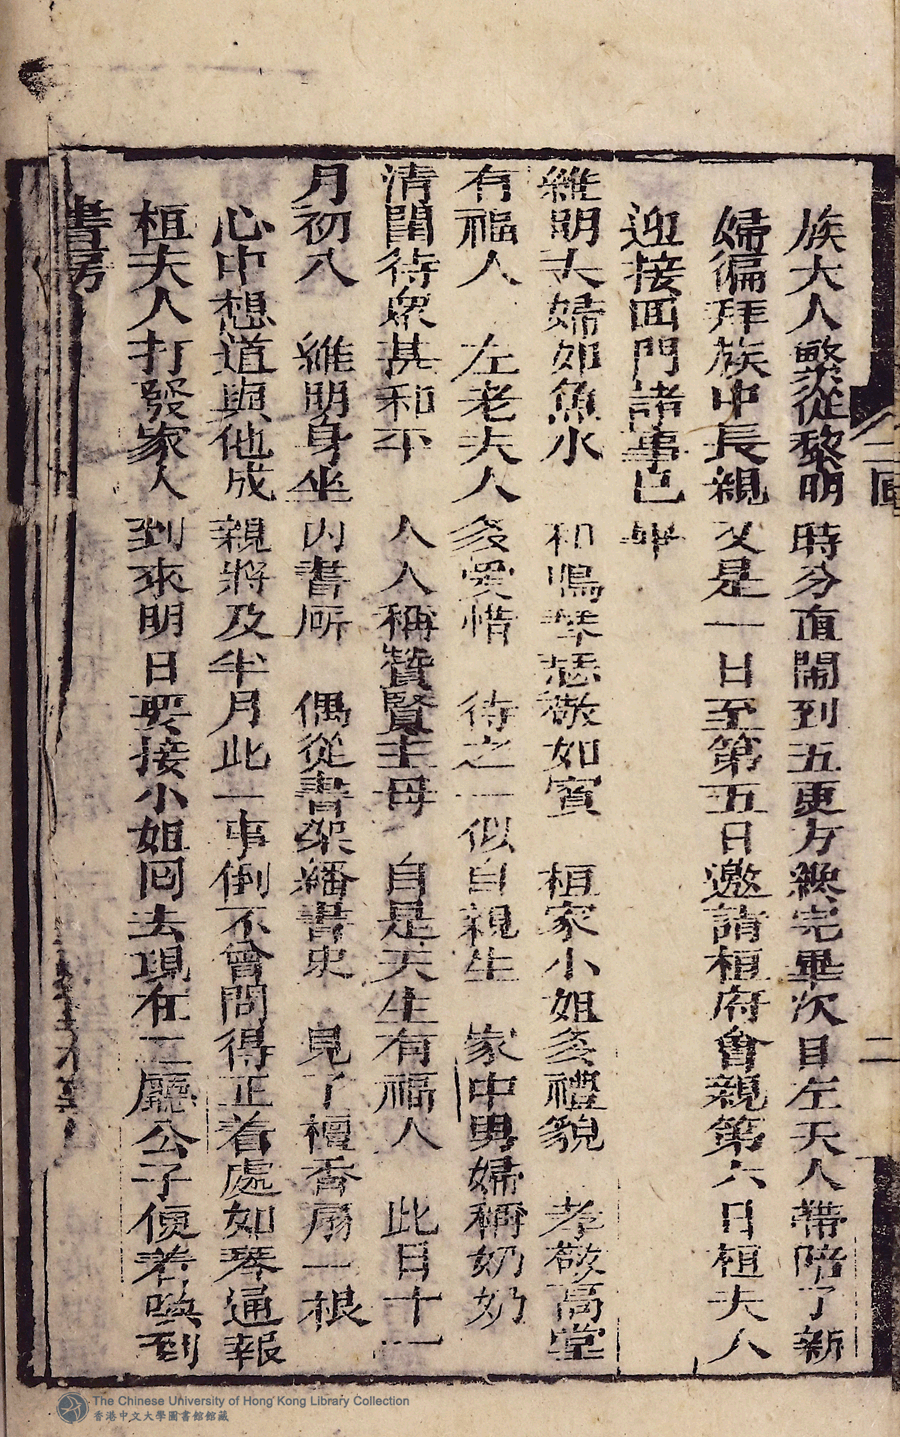 族大人繁從黎明時分直鬧到五更方纔完畢次日左夫人帶陪了新
婦徧拜族中長親又是一日至第五日邀請桓府會親第六日桓夫人
迎接回門諸事已畢
維明夫婦如魚水 和鳴琴瑟敬如賓 桓家小姐多禮貌 孝敬高堂
有福人 左老夫人多愛惜 待之一似自親生 家中男婦稱奶奶
清閒待衆甚和平 人人稱贊賢主母 自是天生有福人 此日十一
月初八 維明身坐內書㕔 偶從書架繙書史 見了檀香扇一根
心中想道與他成親將及半月此一事倒不曾問得正着處如琴通報
桓夫人打發家人到來明日要接小姐回去現在二廳公子便着喚到
書房
二回
二
The Chinese University of Hong Kong Library Collection
香港中文大學圖書館館藏